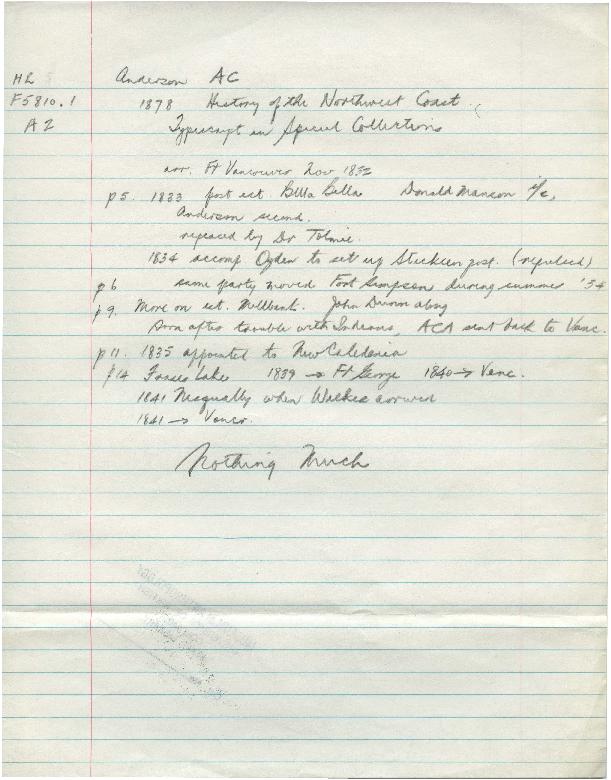 H2 Anderson AC
F5810.1 1878 History of the Northwest Coast
A2 Typescript in Special Collections
arr. Ft Vancouver Nov 1832
p5. 1833 post est. Bella Bella Donald Manson i/c,
Anderson second.
replaced by Dr Tolmie.
1834 accomp Ogden to set up Stickeen post. (repulsed)
p6 same party moved Fort Simpson during summer '34
p9. More on est. Millbank. John Dunn along
Soon after trouble with Indians, ACA sent back to Vanc.
p11. 1835 appointed to New Caledonia
p14 Frases Lake 1839 → Ft George 1840 → Vanc.
1841 Nisqually when Wilkes arrived
1841 → Vancr.
Nothing Much